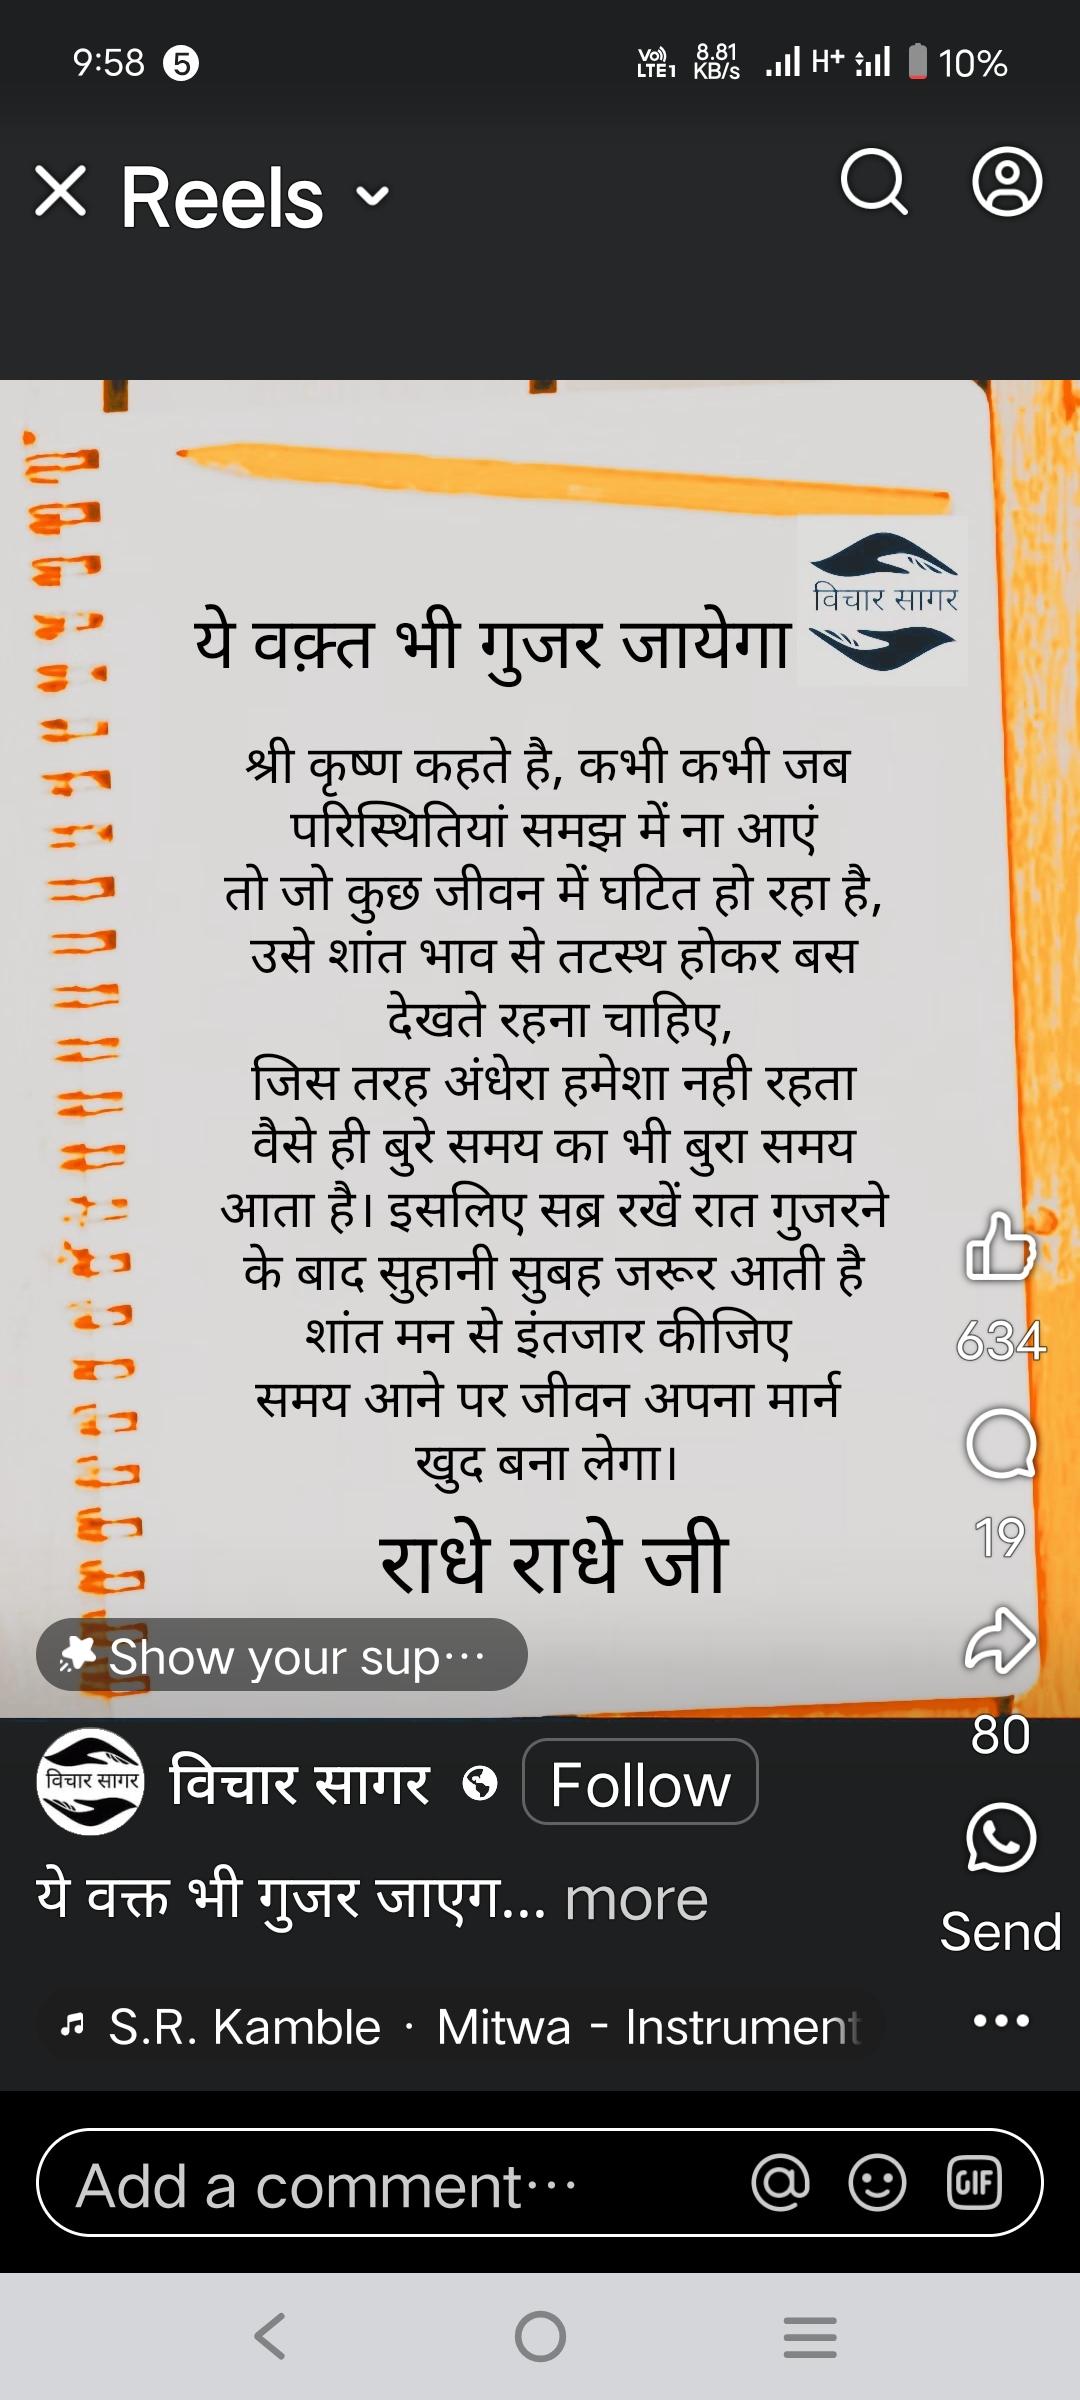 9:58 5 Vo) LTE1 8.81 KB/s H+ 10%
Reels
विचार सागर
ये वक़्त भी गुजर जायेगा
श्री कृष्ण कहते है, कभी कभी जब
परिस्थितियां समझ में ना आएं
तो जो कुछ जीवन में घटित हो रहा है,
उसे शांत भाव से तटस्थ होकर बस
देखते रहना चाहिए,
जिस तरह अंधेरा हमेशा नही रहता
वैसे ही बुरे समय का भी बुरा समय
आता है। इसलिए सब्र रखें रात गुजरने
के बाद सुहानी सुबह जरूर आती है
शांत मन से इंतजार कीजिए
समय आने पर जीवन अपना मार्न
खुद बना लेगा।
राधे राधे जी
634
19
80
Send
Show your sup...
विचार सागर
विचार सागर Follow
ये वक्त भी गुजर जाएग... more
S.R. Kamble · Mitwa - Instrument
Add a comment... @ GIF